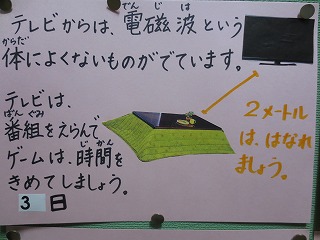 テレビからは、電磁波という
でんじは
体によくないものがでています。
からだ
テレビは、
番組をえらんで
ばんぐみ
ゲームは、時間を
じかん
きめてしましょう。
2メートル
は、はなれ
ましょう。
3日